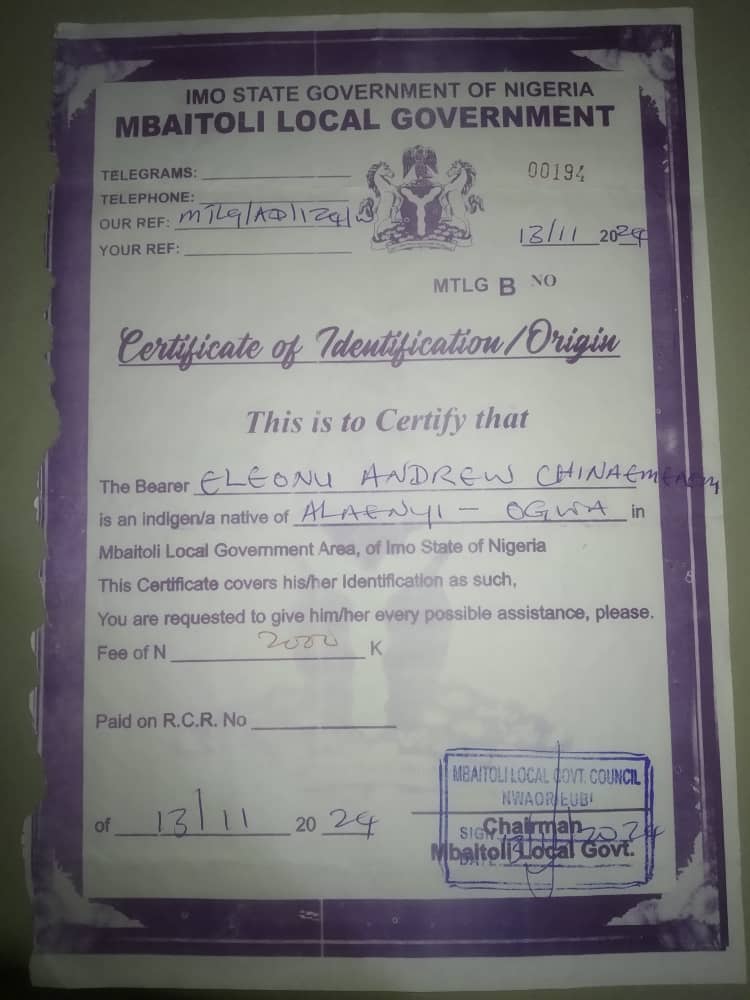 IMO STATE GOVERNMENT OF NIGERIA
MBAITOLI LOCAL GOVERNMENT
TELEGRAMS:
00194
TELEPHONE:
OUR REF: MTLG/AD/124/
13/11 2024
YOUR REF:
MTLG B NO
Certificate of Identification/Origin
This is to Certify that
The Bearer ELEONU ANDREW CHINAEMEREM
is an indigen/a native of ALAENYI - OGWA in
Mbaitoli Local Government Area, of Imo State of Nigeria
This Certificate covers his/her Identification as such,
You are requested to give him/her every possible assistance, please.
Fee of N 2000 K
Paid on R.C.R. No
MBAITOLI LOCAL GOVT. COUNCIL
NWAORIEUBI
of 13/11 20 24
SIGN
Chairman
DATE 13/11/2024
Mbaitoli Local Govt.